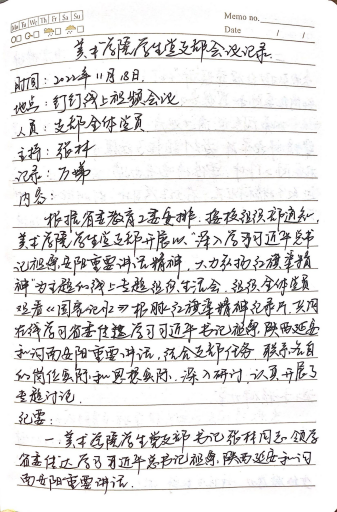 Mo Tu We Th Fr Sa Su
Memo no.
Date / /
美术学院学生党支部会议记录
时间：2022年11月18日.
地点：钉钉线上视频会议
人员：支部全体党员
主持：张林
记录：万娣
内容：
根据省委教育工委安排，接校组织部通知，
美术学院学生党支部开展以"深入学习习近平总书
记视察安阳重要讲话精神，大力弘扬红旗渠精
神"为主题的线上专题组织生活会，组织全体党员
观看《国家记忆》根脉红旗渠精神纪录片，共同
在线学习省委传达学习习近平书记视察陕西延安
和河南安阳重要讲话，结合支部任务，联系各自
的岗位实际和思想实际，深入研讨，认真开展了
专题讨论.
纪要：
一.美术学院学生党支部书记张林同志领学
省委传达学习习近平总书记视察陕西延安和河
南安阳重要讲话.